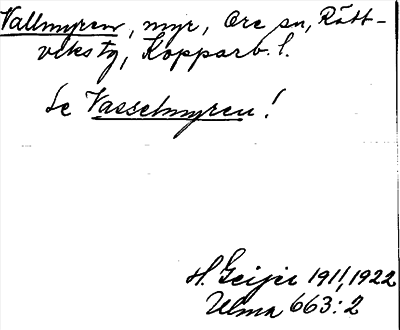 Vallmyren, myr, Ore sn, Rätt-
viks tg, Kopparb. l.
Se Vasselmyren!
H. Geijer 1911, 1922
Ulma 663:2